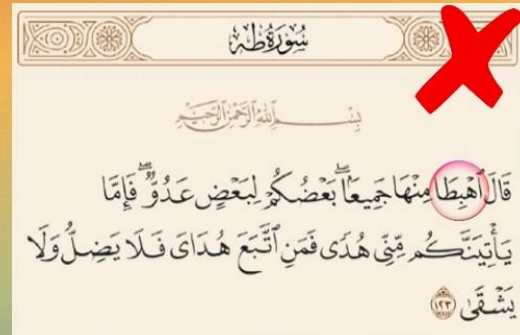 سُورَةُ طه
بِسْمِ ٱللَّهِ ٱلرَّحْمَٰنِ ٱلرَّحِيمِ
قَالَ ٱهْبِطَا مِنْهَا جَمِيعًۢاۖ بَعْضُكُمْ لِبَعْضٍ عَدُوٌّۖ فَإِمَّا
يَأْتِيَنَّكُم مِّنِّى هُدًى فَمَنِ ٱتَّبَعَ هُدَاىَ فَلَا يَضِلُّ وَلَا
يَشْقَىٰ ١٢٣